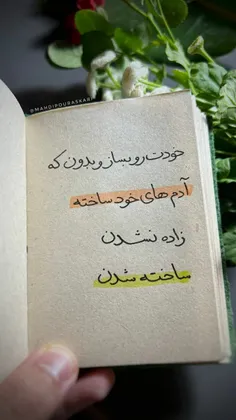 @MAHDIPOURASKARI
خودت رو بساز و بدون که
آدم های خود ساخته
زاده نشدن
ساخته شدن